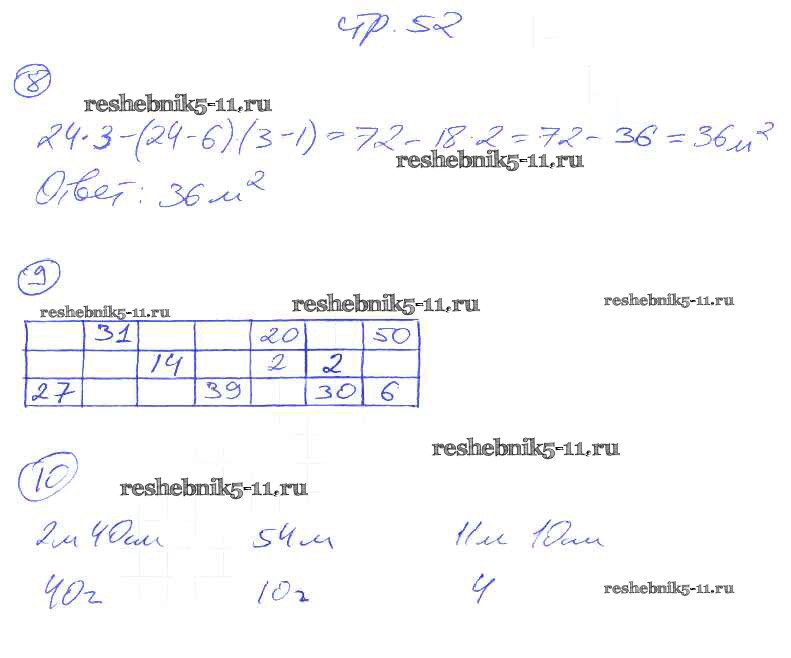 стр. 52
8
reshebnik5-11.ru
24·3-(24-6)(3-1)=72-18·2=72-36=36м²
reshebnik5-11.ru
Ответ: 36м²
9
reshebnik5-11.ru reshebnik5-11.ru reshebnik5-11.ru
31 20 50
14 2 2
27 39 30 6
reshebnik5-11.ru
10
reshebnik5-11.ru
2м 40см 54м 11м 10см
40г 10г 4
reshebnik5-11.ru